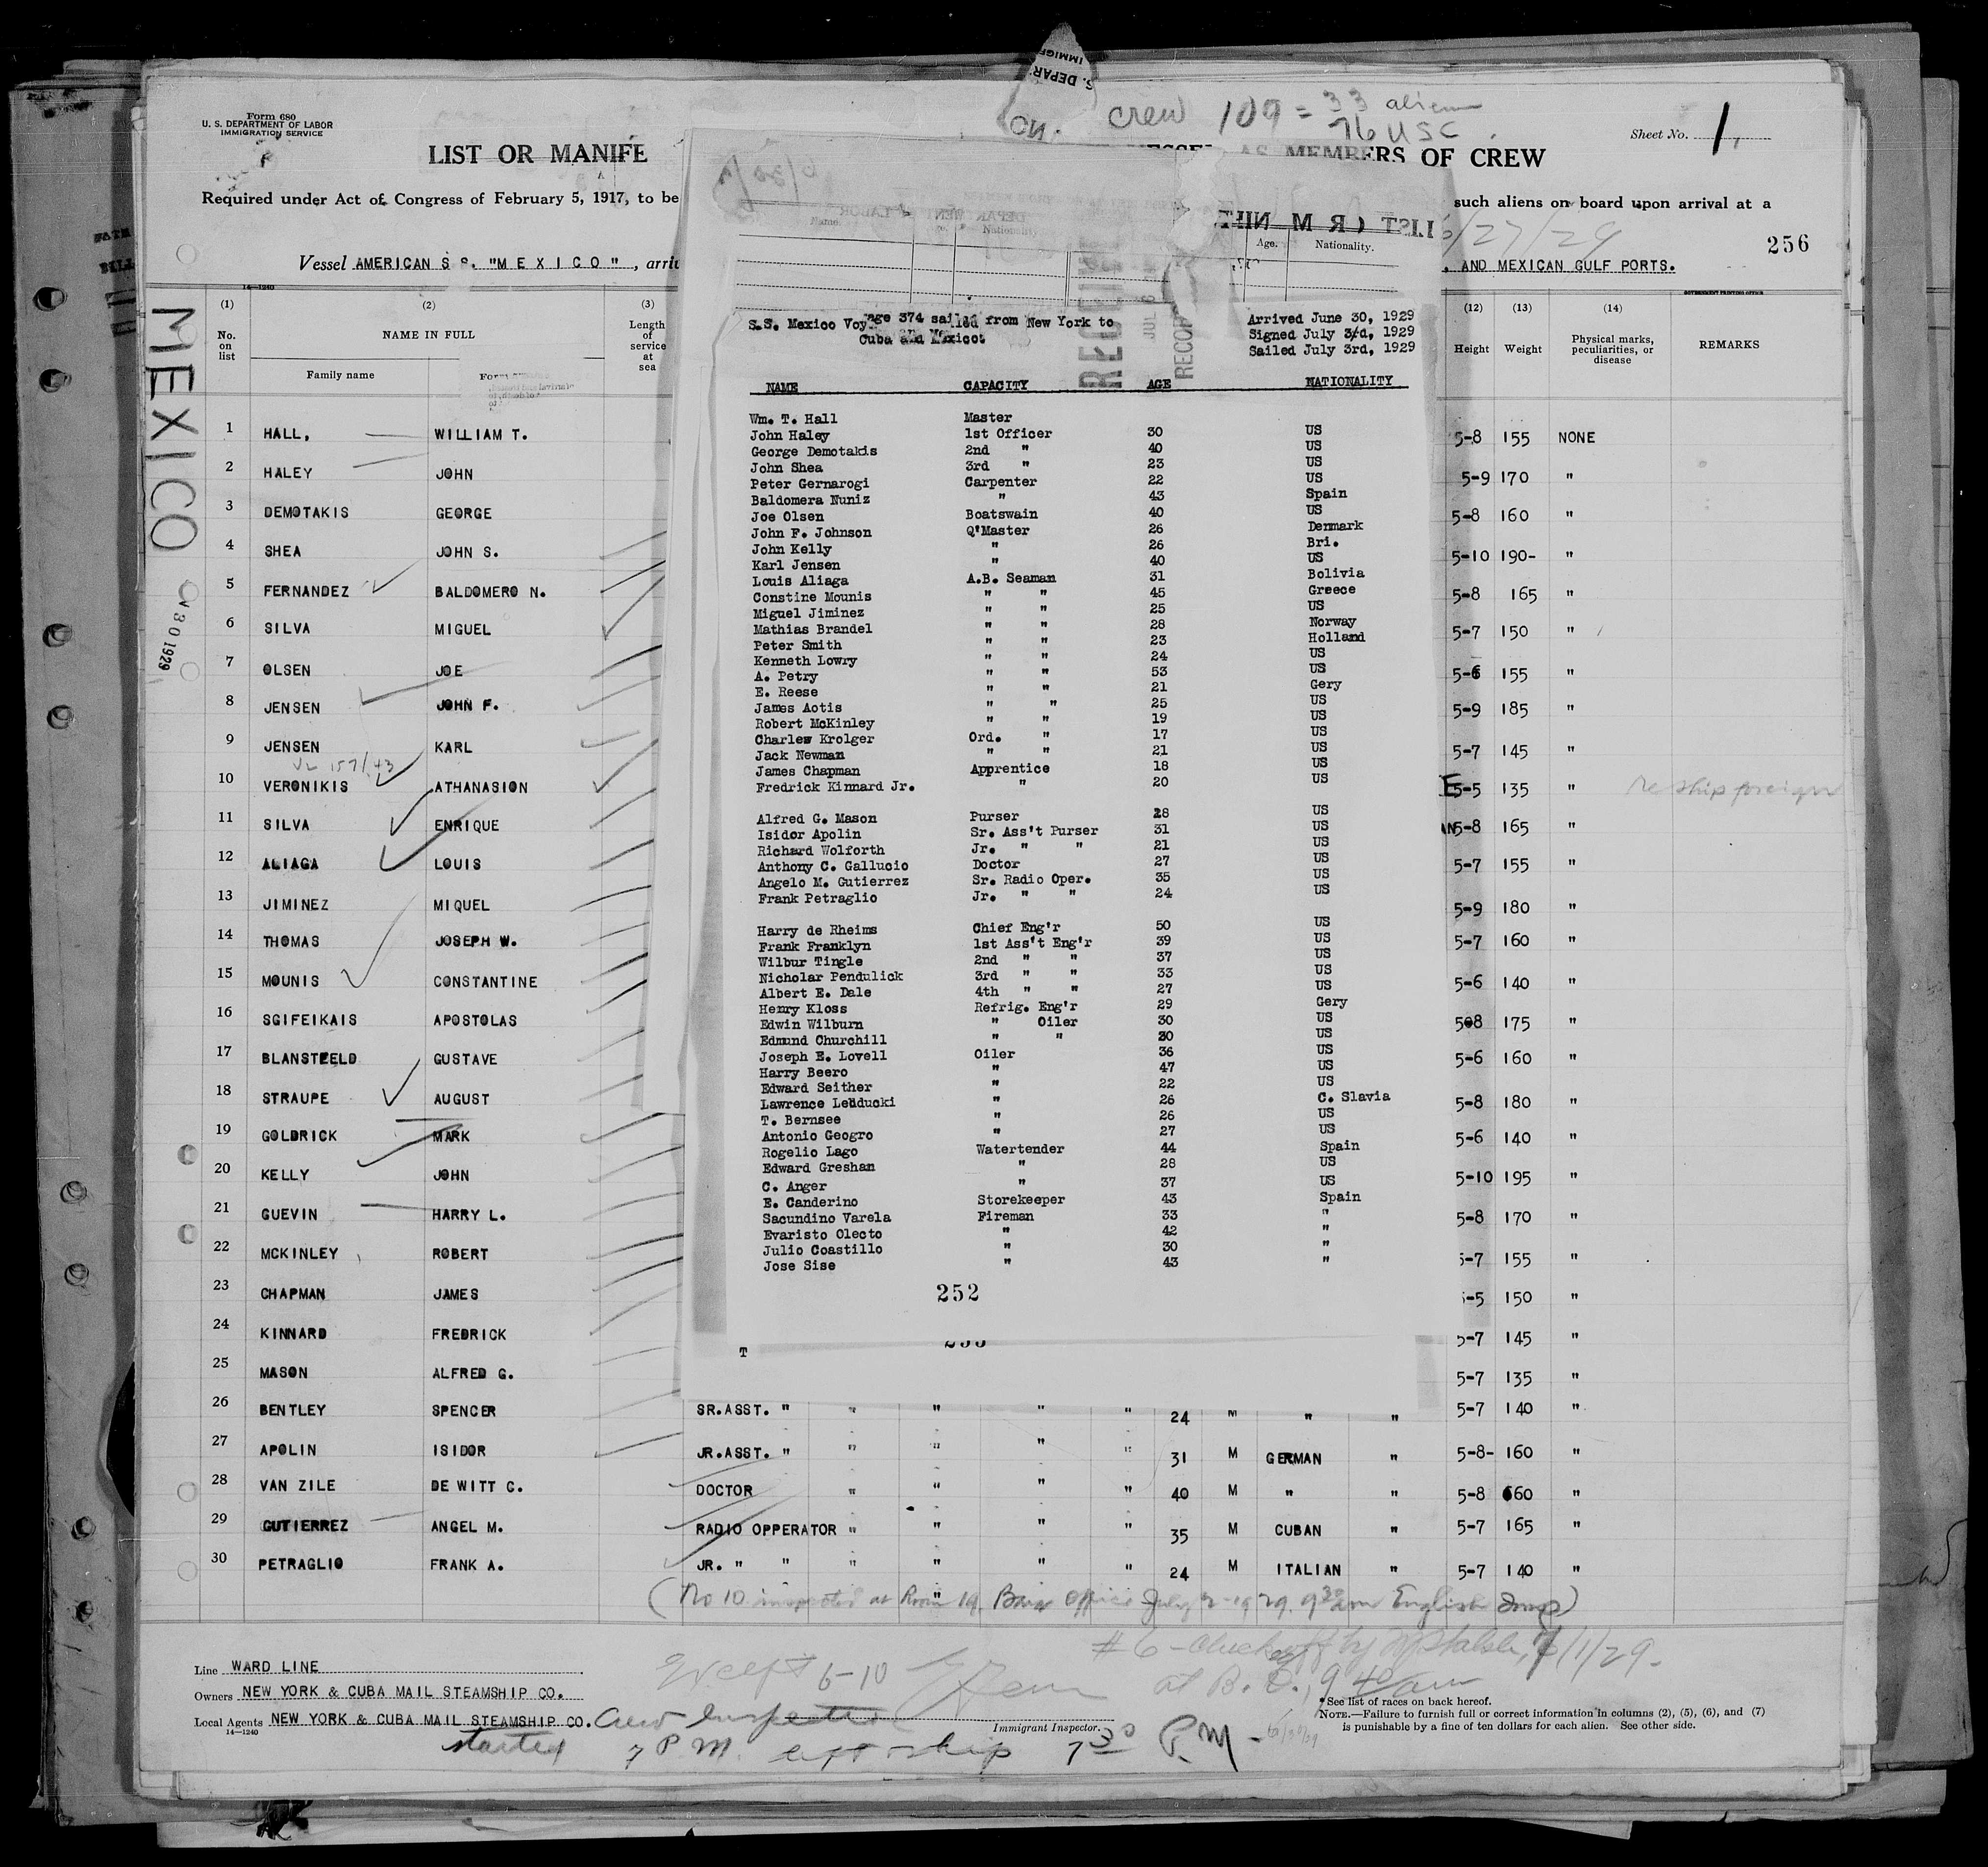 S. DEPAR
IMMIGR
NO.
crew 109 = 33 alien
76 USC.
Form 680
U. S. DEPARTMENT OF LABOR
IMMIGRATION SERVICE
Sheet No. 1,
LIST OR MANIFE
AS MEMBERS OF CREW
Required under Act of Congress of February 5, 1917, to be
such aliens on board upon arrival at a
/27/29
256
Vessel AMERICAN S S. "MEXICO", arri
, AND MEXICAN GULF PORTS.
MEXICO
301929
14-1240
(1) No. on list
(2) NAME IN FULL
Family name
(3) Length of service at sea
(12) Height
(13) Weight
(14) Physical marks, peculiarities, or disease
REMARKS
1 HALL, WILLIAM T. 5-8 155 NONE
2 HALEY JOHN 5-9 170 "
3 DEMOTAKIS GEORGE 5-8 160 "
4 SHEA JOHN S. 5-10 190- "
5 FERNANDEZ BALDOMERO N. 5-8 165 "
6 SILVA MIGUEL 5-7 150 "
7 OLSEN JOE 5-6 155 "
8 JENSEN JOHN F. 5-9 185 "
9 JENSEN KARL 5-7 145 "
10 VERONIKIS ATHANASION 5-5 135 " reship foreign
11 SILVA ENRIQUE 5-8 165 "
12 ALIAGA LOUIS 5-7 155 "
13 JIMINEZ MIQUEL 5-9 180 "
14 THOMAS JOSEPH W. 5-7 160 "
15 MOUNIS CONSTANTINE 5-6 140 "
16 SGIFEIKAIS APOSTOLAS 508 175 "
17 BLANSTEELD GUSTAVE 5-6 160 "
18 STRAUPE AUGUST 5-8 180 "
19 GOLDRICK MARK 5-6 140 "
20 KELLY JOHN 5-10 195 "
21 GUEVIN HARRY L. 5-8 170 "
22 MCKINLEY ROBERT 5-7 155 "
23 CHAPMAN JAMES 5-5 150 "
24 KINNARD FREDRICK 5-7 145 "
25 MASON ALFRED G. 5-7 135 "
26 BENTLEY SPENCER SR.ASST. " " " " " 24 M " " 5-7 140 "
27 APOLIN ISIDOR JR.ASST. " " " " " 31 M GERMAN " 5-8- 160 "
28 VAN ZILE DE WITT C. DOCTOR " " " " 40 M " " 5-8 660 "
29 GUTIERREZ ANGEL M. RADIO OPPERATOR " " " " 35 M CUBAN " 5-7 165 "
30 PETRAGLIO FRANK A. JR. " " " " " " 24 M ITALIAN " 5-7 140 "
Name.
Nationality.
Age. Nationality.
S.S. Mexico Voyage 374 sailed from New York to
Cuba and Mexico.
Arrived June 30, 1929
Signed July 3rd, 1929
Sailed July 3rd, 1929
NAME CAPACITY AGE NATIONALITY
Wm. T. Hall Master
John Haley 1st Officer 30 US
George Demotakis 2nd " 40 US
John Shea 3rd " 23 US
Peter Gernarogi Carpenter 22 US
Baldomera Nuniz " 43 Spain
Joe Olsen Boatswain 40 US
John F. Johnson Q'Master 26 Denmark
John Kelly " 26 Bri.
Karl Jensen " 40 US
Louis Aliaga A.B. Seaman 31 Bolivia
Constine Mounis " " 45 Greece
Miguel Jiminez " " 25 US
Mathias Brandel " " 28 Norway
Peter Smith " " 23 Holland
Kenneth Lowry " " 24 US
A. Petry " " 53 US
E. Reese " " 21 Gery
James Aotis " " 25 US
Robert McKinley " " 19 US
Charlew Krolger Ord. " 17 US
Jack Newman " " 21 US
James Chapman Apprentice 18 US
Fredrick Kinnard Jr. " 20 US
Alfred G. Mason Purser 28 US
Isidor Apolin Sr. Ass't Purser 31 US
Richard Wolforth Jr. " " 21 US
Anthony C. Gallucio Doctor 27 US
Angelo M. Gutierrez Sr. Radio Oper. 35 US
Frank Petraglio Jr. " " 24 US
Harry de Rheims Chief Eng'r 50 US
Frank Franklyn 1st Ass't Eng'r 39 US
Wilbur Tingle 2nd " " 37 US
Nicholar Pendulick 3rd " " 33 US
Albert E. Dale 4th " " 27 US
Henry Kloss Refrig. Eng'r 29 Gery
Edwin Wilburn " Oiler 30 US
Edmund Churchill " " 30 US
Joseph E. Lovell Oiler 36 US
Harry Beero " 47 US
Edward Seither " 22 US
Lawrence Lenducki " 26 C. Slavia
T. Bernsee " 26 US
Antonio Geogro " 27 US
Rogelio Lago Watertender 44 Spain
Edward Greshan " 28 US
C. Anger " 37 US
E. Canderino Storekeeper 43 Spain
Sacundino Varela Fireman 33 "
Evaristo Olecto " 42 "
Julio Coastillo " 30 "
Jose Sise " 43 "
252
T
(No 10 inspected at Room 19. Barge Office July 2-1929. 9 30 am English Imp)
#6 - Checked off by 7/1/29.
at B. O., 9 40 am
Except 6-10
Line WARD LINE
Owners NEW YORK & CUBA MAIL STEAMSHIP CO.
Local Agents NEW YORK & CUBA MAIL STEAMSHIP CO.
14-1240
Crew Inspection
Immigrant Inspector.
started 7 P.M. left ship 7 30 P.M.
*See list of races on back hereof.
NOTE.—Failure to furnish full or correct information in columns (2), (5), (6), and (7)
is punishable by a fine of ten dollars for each alien. See other side.